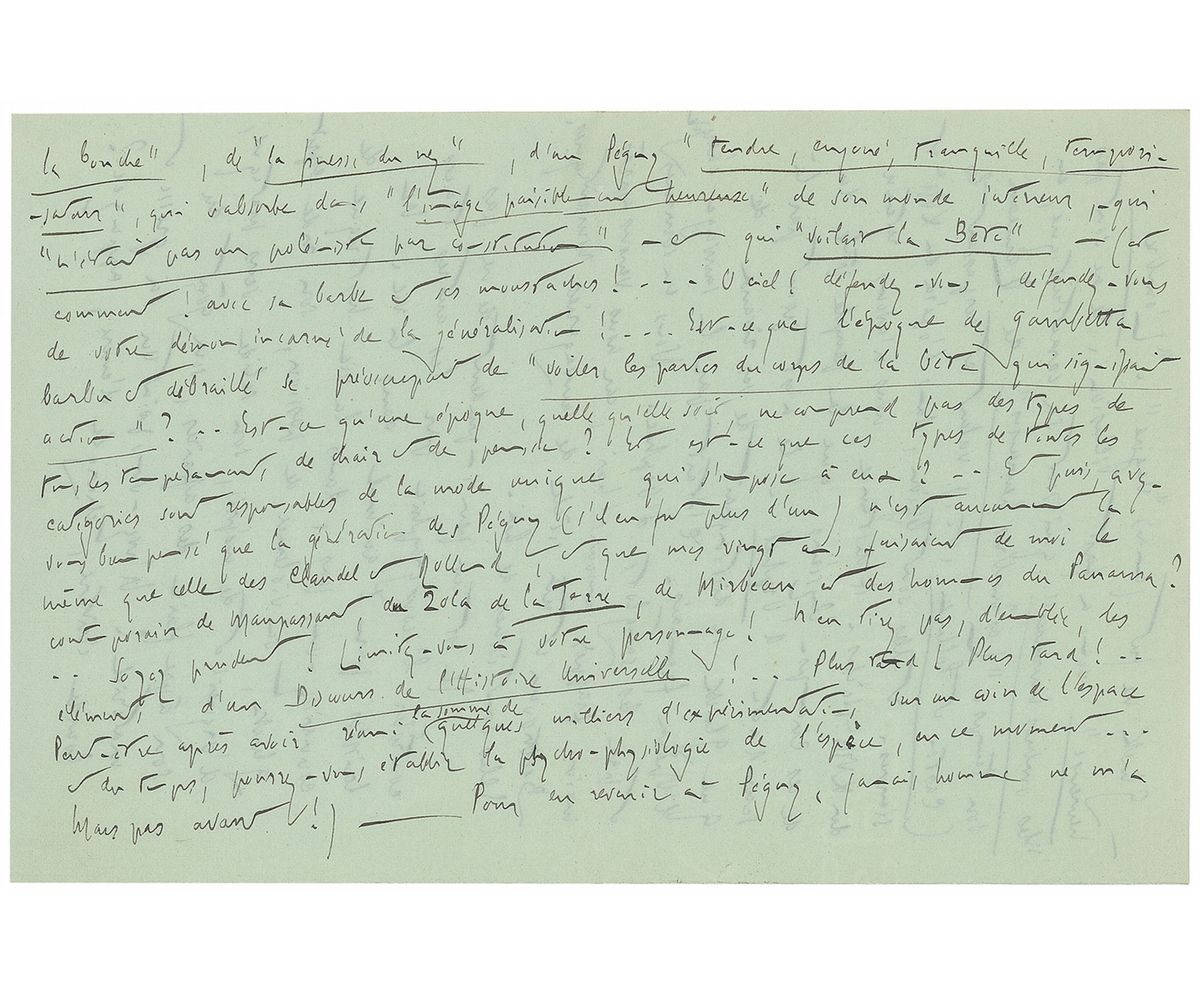 la bouche", de "la finesse du nez", d'un Péguy "tendre, enjoué, tranquille, tempori-
-sateur", qui s'absorbe dans "l'image paisible ou heureuse" de son monde intérieur, - qui
"n'était pas un polémiste par constitution" - et qui "voilait la Bête" - (et
comment ! avec sa barbe et ses moustaches ! - - - O ciel ! défendez-vous, défendez-vous
de votre démon incarné de la généralisation ! - - - Est-ce que l'époque de Gambetta
barbu et débraillé se préoccupait de "voiler les parties du corps de la bête qui signifiait
action" ? - - Est-ce qu'une époque, quelle qu'elle soit, ne comprend pas des types de
tous les tempéraments de chair et de pensée ? Et est-ce que ces types de toutes les
catégories sont responsables de la mode unique qui s'impose à eux ? - - Et puis, avez-
vous bien pensé que la génération des Péguy (s'il en fut plus d'un) n'est aucunement la
même que celle des Claudel et Rolland, et que mes vingt ans faisaient de moi le
contemporain de Maupassant, du Zola de la Terre, de Mirbeau et des hommes du Panama ?
- - Soyez prudent ! Limitez-vous à votre personnage ! N'en tirez pas, d'emblée, les
éléments d'un Discours de l'Histoire Universelle ! - - Plus tard ! Plus tard ! - -
Peut-être après avoir réuni la somme de quelques milliers d'expérimentations sur un coin de l'espace
et du temps, pourrez-vous établir la psycho-physiologie de l'espèce, en ce moment - - -
Mais pas avant !) — Pour en revenir à Péguy, jamais homme ne m'a